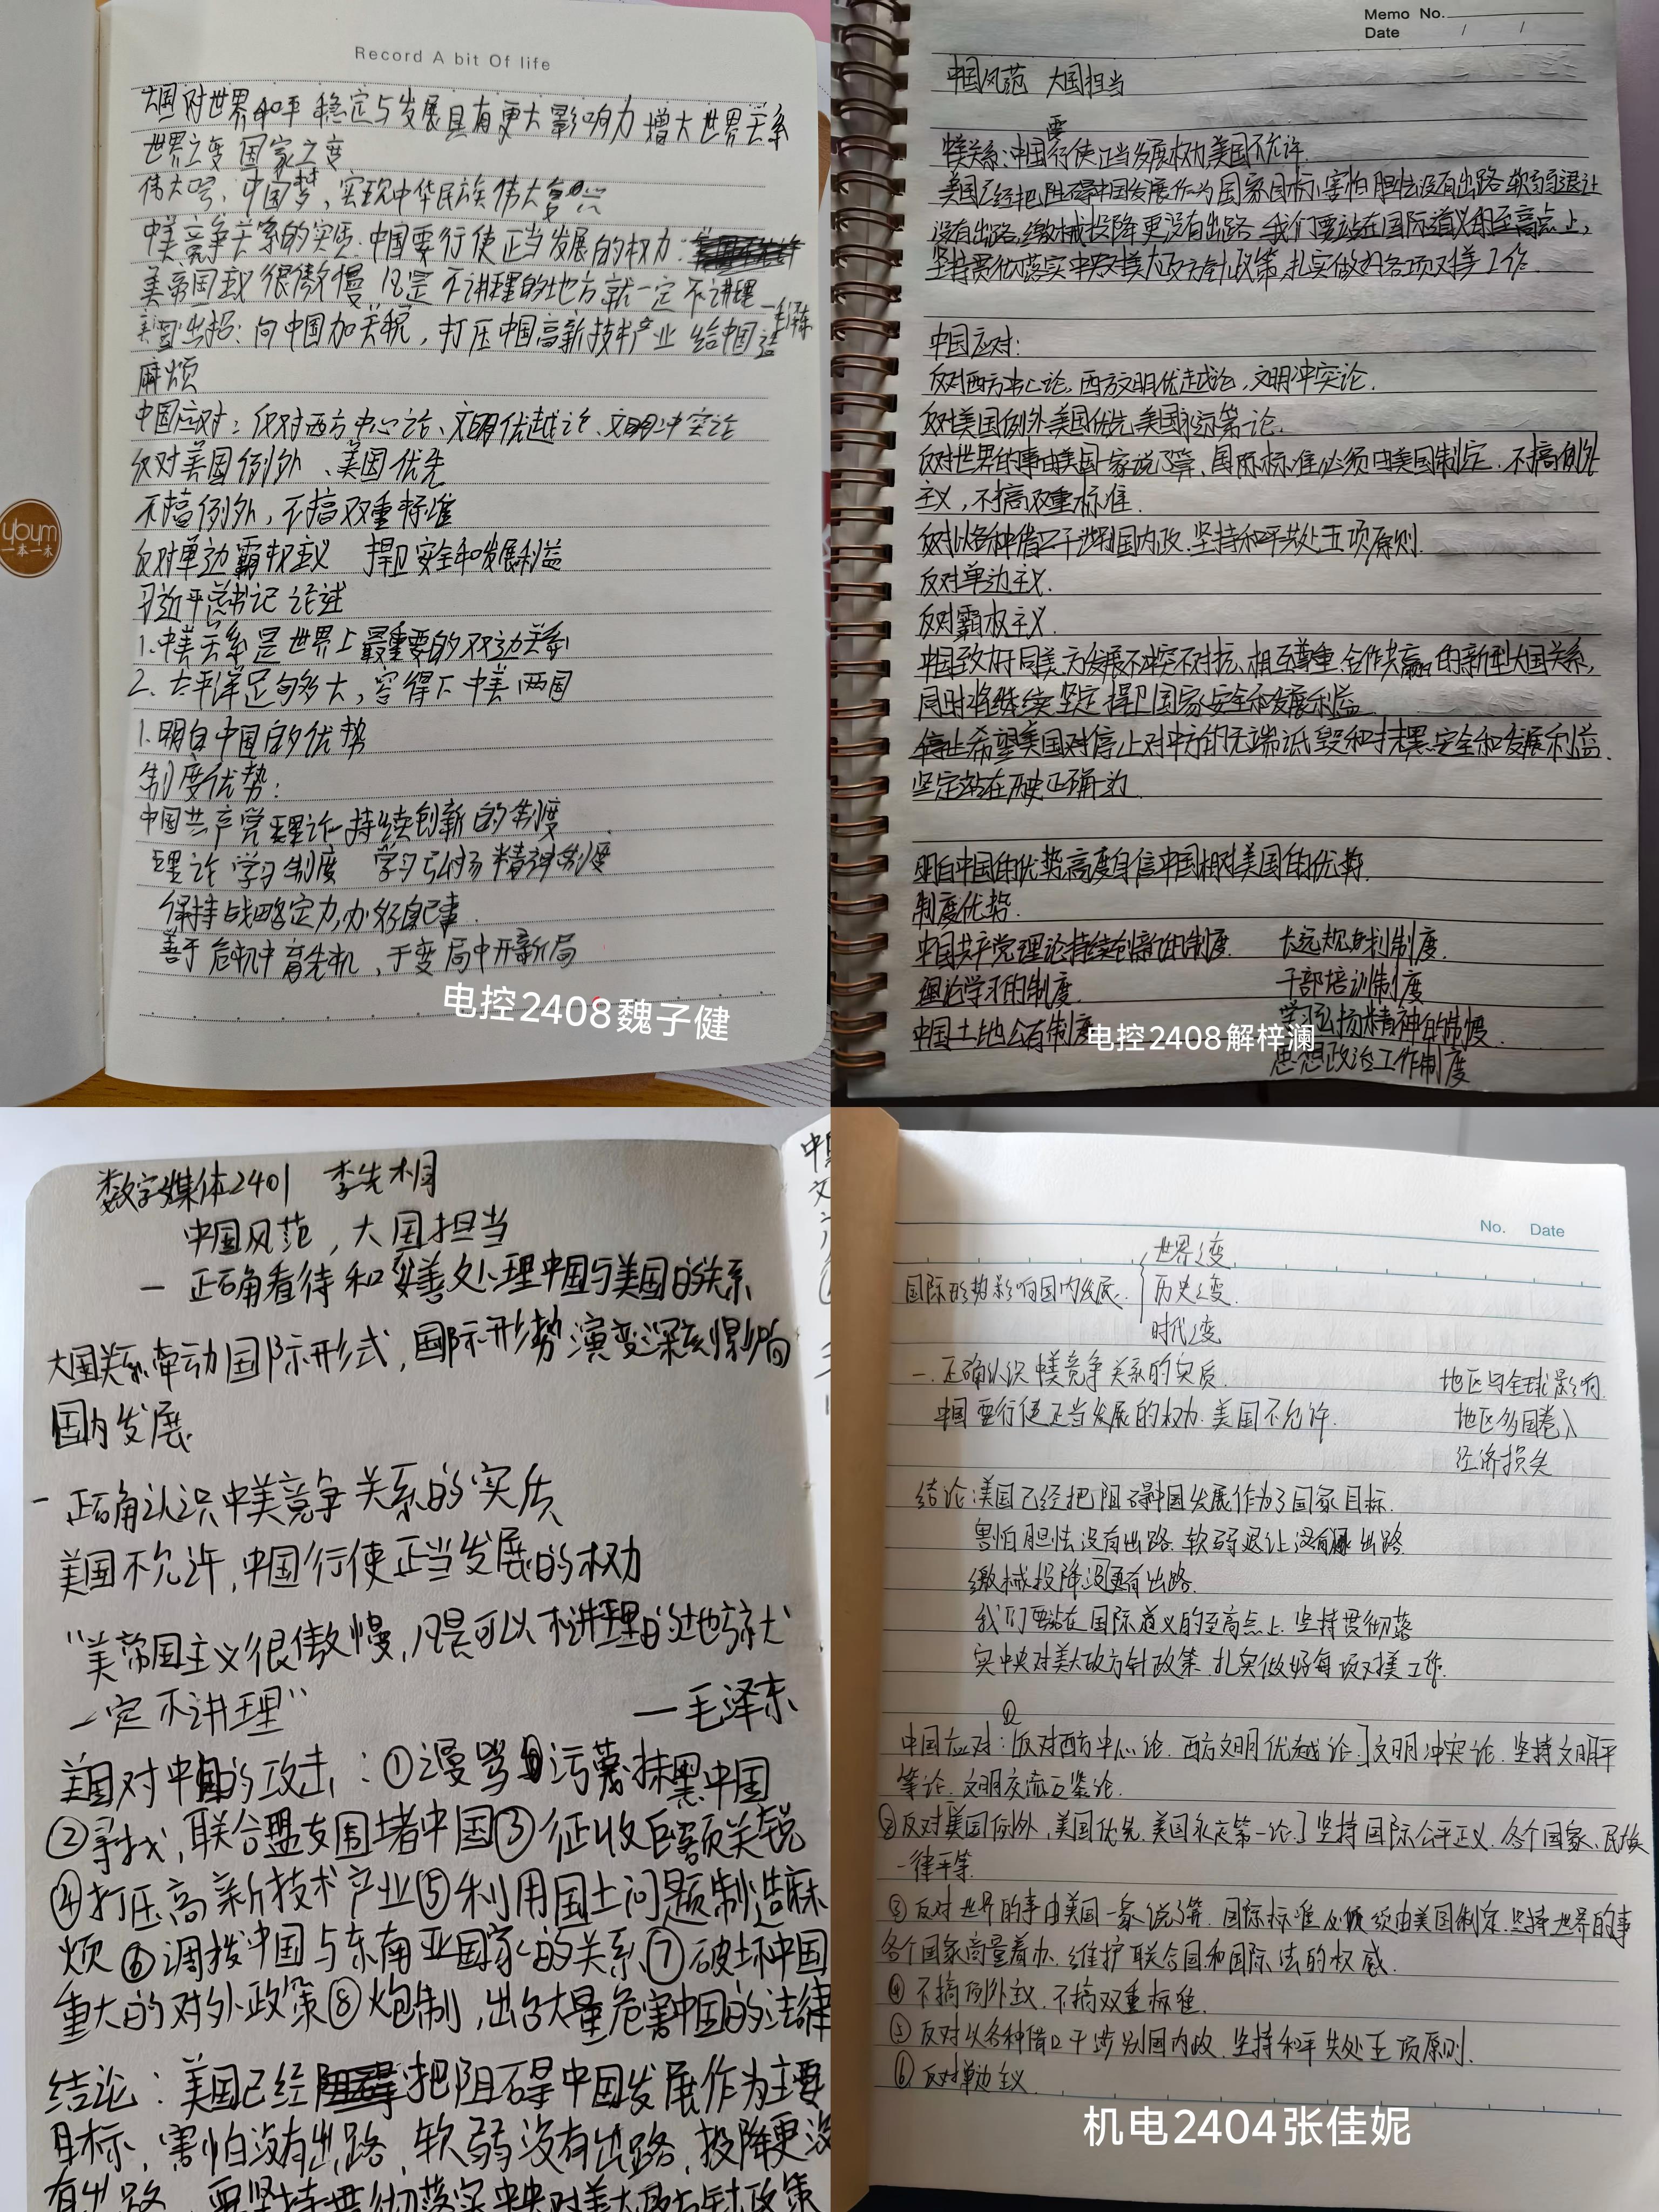 Record A bit Of life
大国对世界和平稳定与发展具有更大影响力 增大世界关系
世界之变 国家之变
伟大号：中国梦，实现中华民族伟大复兴
中美竞争关系的实质：中国要行使正当发展的权力：
美帝国主义很傲慢 凡是不讲理的地方就一定不讲理
—毛泽东
美国出招：向中国加关税，打压中国高新技术产业 给中国造
麻烦
中国应对：反对西方中心论、文明优越论、文明冲突论
反对美国例外、美国优先
不搞例外，不搞双重标准
反对单边霸权主义 捍卫安全和发展利益
习近平总书记论述
1.中美关系是世界上最重要的双边关系
2.太平洋足够大，容得下中美两国
1.明白中国的优势
制度优势：
中国共产党理论持续创新的制度
理论学习制度 学习弘扬精神制度
保持战略定力，办好自己事
善于危机中育先机，于变局中开新局
yoym
一本一木
电控2408魏子健
Memo No.
Date / /
中国风范 大国担当
中美关系：中国要行使正当发展权力，美国不允许.
美国已经把阻碍中国发展作为国家目标，害怕胆怯没有出路，软弱退让
没有出路，缴械投降更没有出路，我们要站在国际道义的至高点上，
坚持贯彻落实中央对美大政方针政策，扎实做好各项对美工作.
中国应对：
反对西方中心论，西方文明优越论，文明冲突论.
反对美国例外，美国优先，美国永远第一论.
反对世界的事由美国一家说了算，国际标准必须由美国制定，不搞例外
主义，不搞双重标准.
反对以各种借口干涉别国内政，坚持和平共处五项原则.
反对单边主义.
反对霸权主义.
中国致力于同美方发展不冲突不对抗、相互尊重、合作共赢的新型大国关系，
同时将继续坚定捍卫国家安全和发展利益
希望美国对停止对中方的无端诋毁和抹黑安全和发展利益.
坚定站在历史正确一边
明白中国的优势，高度自信中国相对美国的优势.
制度优势.
中国共产党理论持续创新的制度. 长远规划制度.
理论学习的制度. 干部培训制度
中国土地公有制度 学习弘扬精神的制度.
思想政治工作制度
电控2408解梓澜
数字媒体2401 李先相
中国风范，大国担当
一 正确看待和妥善处理中国与美国的关系
大国关系牵动国际形式，国际形势演变深刻影响
国内发展.
一 正确认识中美竞争关系的实质
美国不允许，中国行使正当发展的权力
“美帝国主义很傲慢，凡是可以不讲理的地方就
一定不讲理”
—毛泽东
美国对中国的攻击：①谩骂污蔑抹黑中国
②寻找，联合盟友围堵中国③征收巨额关税
④打压高新技术产业⑤利用国土问题制造麻
烦⑥调拨中国与东南亚国家的关系⑦破坏中国
重大的对外政策⑧炮制，出台大量危害中国的法律
结论：美国已经把阻碍中国发展作为主要
目标，害怕没有出路，软弱没有出路，投降更没
有出路，要坚持贯彻落实中央对美大政方针政策
No. Date
世界之变
国际形势影响国内发展. 历史之变.
时代之变
一.正确认识中美竞争关系的实质.
中国要行使正当发展的权力.美国不允许.
地区与全球影响
地区多国卷入
经济损失
结论：美国已经把阻碍中国发展作为了国家目标.
害怕胆怯没有出路.软弱退让没有出路.
缴械投降更没有出路.
我们要站在国际道义的至高点上.坚持贯彻落
实中央对美大政方针政策.扎实做好每项对美工作.
中国应对：①[反对西方中心论.西方文明优越论.]文明冲突论.坚持文明平
等论.文明交流互鉴论.
②反对[美国例外，美国优先.美国永远第一论]坚持国际公平正义.各个国家、民族
一律平等.
③反对世界的事由美国一家说了算.国际标准必须由美国制定.坚持世界的事
各个国家商量着办.维护联合国和国际法的权威.
④不搞例外主义.不搞双重标准.
⑤反对以各种借口干涉别国内政.坚持和平共处五项原则.
⑥反对单边主义.
机电2404张佳妮